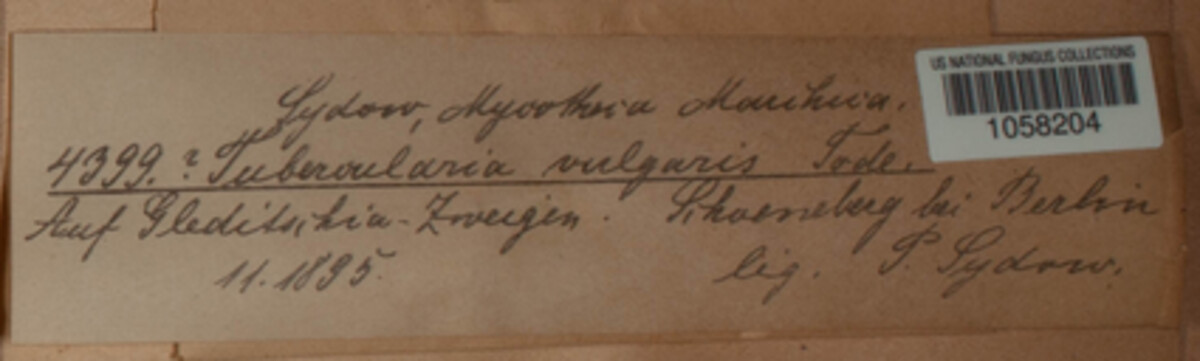 US NATIONAL FUNGUS COLLECTIONS
1058204
Sydow, Mycotheca Marchica.
4399. ? Tubercularia vulgaris Tode.
Auf Gleditschia-Zweigen. Schoeneberg bei Berlin
11.1895. lig. P. Sydow.